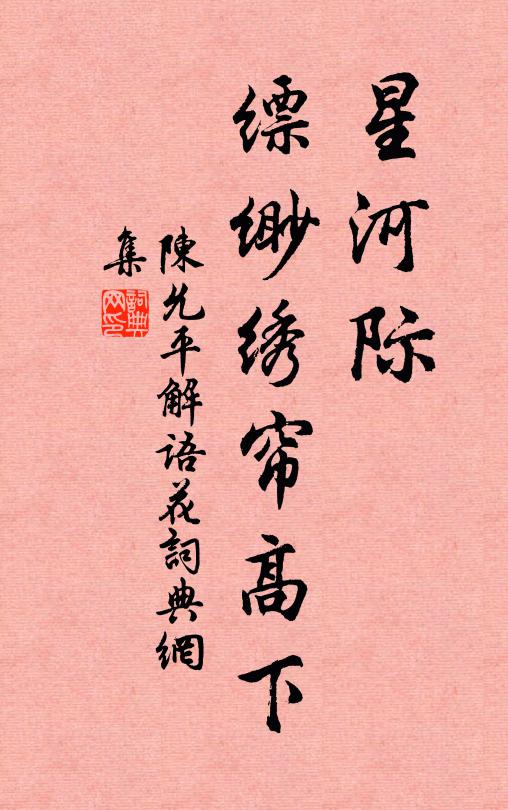 星河际
缥缈绣帘高下
陳允平解語花詞典網
集
詞典网印